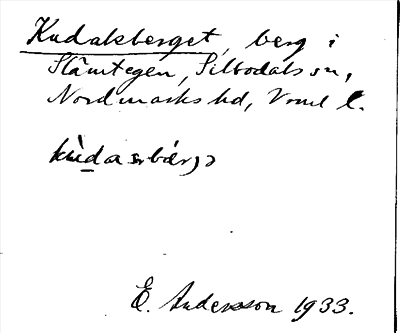 Kudakberget, berg i
Slämtegen, Silbodals sn,
Nordmarks hd, Vrml l.
E. Andersson 1933.